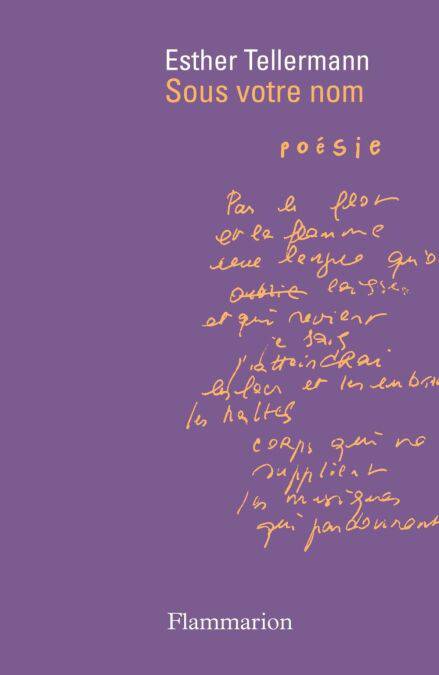 Esther Tellermann
Sous votre nom
poésie
Par le
et la flamme
une langue qu'o
oublie laissée
et qui revient
je sais
j'atteindrai
les lacs et les
les haltes
corps qui ne
supplient
les musiques
qui parcourent
Flammarion